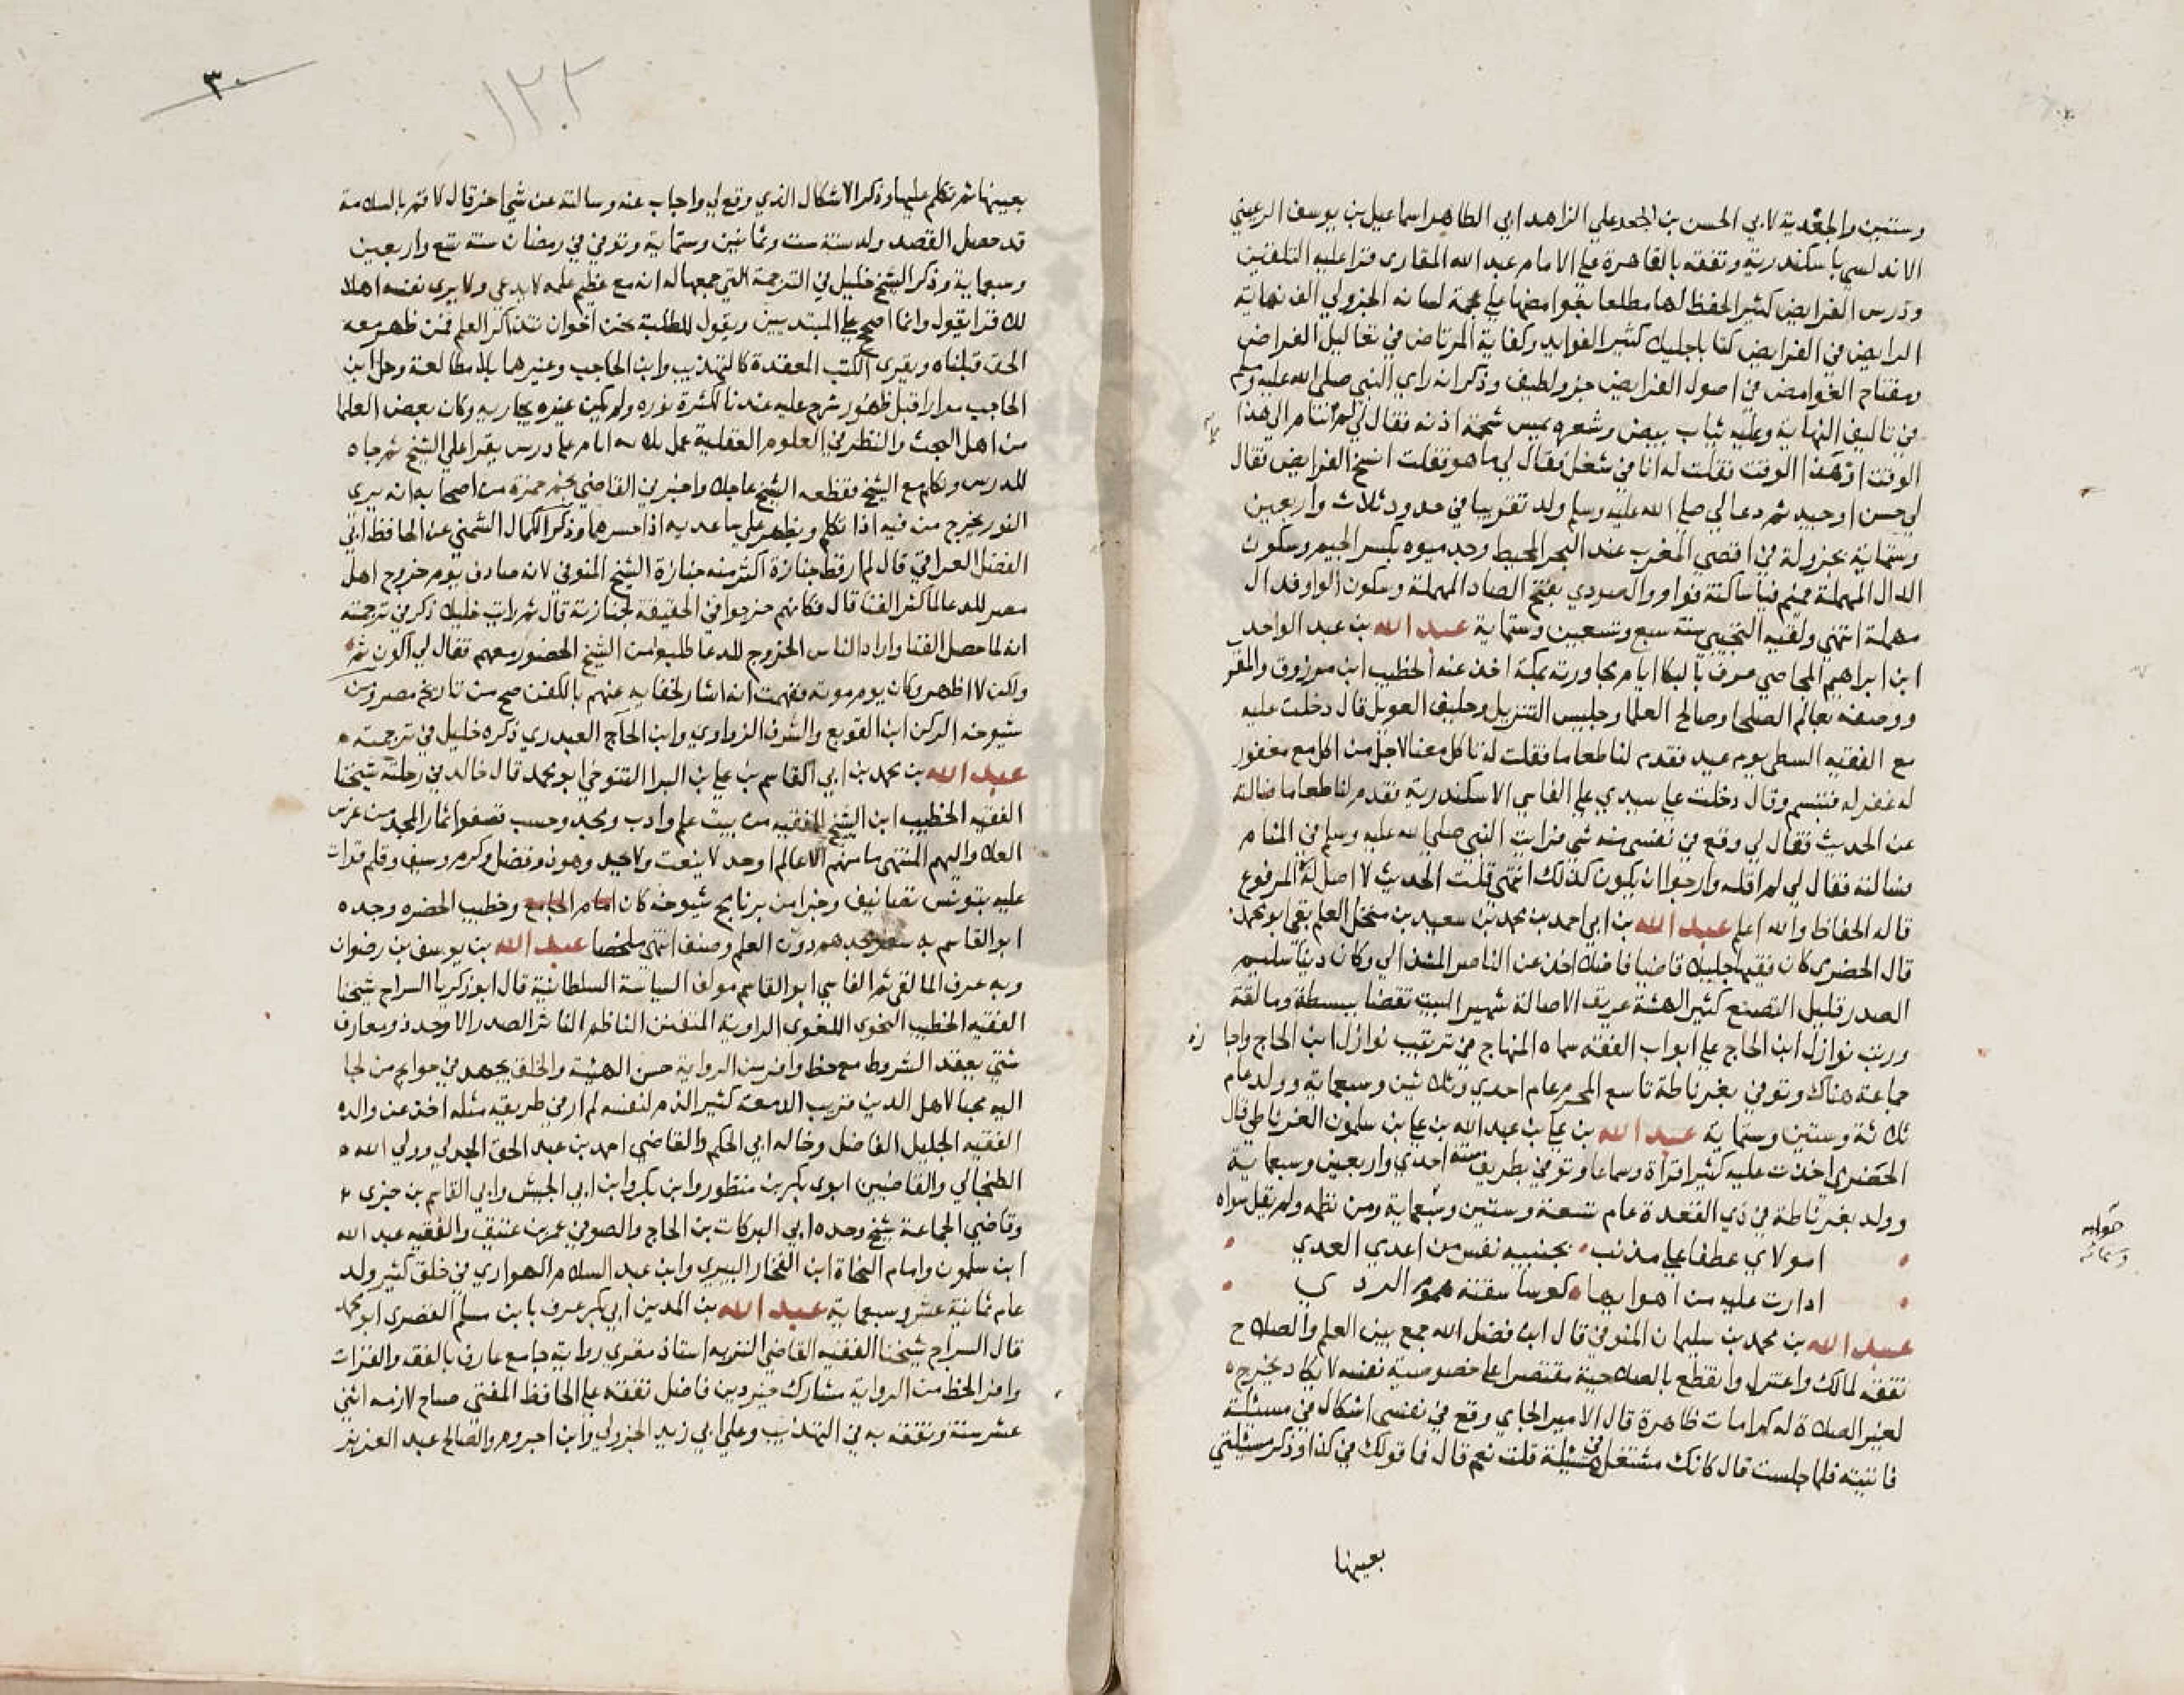 وستين والجعدية لابي الحسن بن الجعد علي الزاهد ابي الطاهر اسماعيل بن يوسف الرعيني
الاندلسي باسكندرية وتفقه بالقاهرة علي الامام عبد الله المقاري قرا عليه التلقين
ودرس الفرايض كثير الحفظ لها مطلعا بغوامضها علي عجمة لسانه الجزولي الف نهاية
الرايض في الفرايض كتابا جليلا كثير الفوايد وكفاية المرتاض في تعاليل الفراض
ومفتاح الغوامض في اصول الفرايض جزو لطيف وذكر انه راي النبي صلي الله عليه وسلم
في تاليف النهاية وعليه ثياب بيض وشعره يمس شحمة اذنه فقال لي لم تنام الي هذا
الوقت او هذا الوقت فقلت له انا في شغل فقال لي ما هو فقلت انسخ الفرايض فقال
لي حسن او جيد ثم دعا لي صلي الله عليه وسلم ولد تقريبا في حدود ثلاث واربعين
وستماية بجزولة في اقصي المغرب عند البحر المحيط وجدميوه بكسر الجيم وسكون
الدال المهملة فميم فيا ساكنة فواو والصودي بفتح الصاد المهملة وسكون الواو فدال
مهملة انتهي ولقيه التجيبي سنة سبع وتسعين وستماية عبد الله بن عبد الواحد
ابن ابراهيم المجاصي عرف بالبكا ايام مجاورته بمكة اخذ عنه الخطيب ابن مرزوق والمقر
ووصفه بعالم الصلحا وصالح العلما وجليس التنزيل وحليف العويل قال دخلت عليه
مع الفقيه السطي يوم عيد فقدم لنا طعاما فقلت له تاكل معنا لاجل من اكل مع مغفور
له غفر له فتبسم وقال دخلت علي سيدي علي الفاسي الاسكندرية فقدم لنا طعاما فسالته
عن الحديث فقال لي وقع في نفسي منه شي فرايت النبي صلي الله عليه وسلم في المنام
فسالته فقال لي لم اقله وارجوا ان يكون كذلك انتهي قلت الحديث لا اصل له المرفوع
قاله الحفاظ والله اعلم عبد الله بن ابي احمد بن محمد بن سعيد بن منخل العلم بقي ابو محمد
قال الحضري كان فقيها جليلا قاضيا فاضلا اخذ عن الناصر المشذالي وكان دينا سليم
الصدر قليل التصنع كثير الهشة عريق الاصالة شهير البيت تقضا ببسطة ومالقة
ورتب نوازل ابن الحاج علي ابواب الفقه سماه المنهاج في ترتيب نوازل ابن الحاج واجا زه
جماعة هناك وتوفي بغرناطة تاسع المحرم عام احدي وثلاثين وسبعماية وولد عام
ثلاثة وستين وستماية عبد الله بن علي بن عبد الله بن علي بن سلمون الغرناطي قال
الحضري اخذت عليه كثيرا قراة وسماعا وتوفي بطريف سنة احدي واربعين وسبعماية
وولد بغرناطة في ذي القعدة عام تسعة وستين وسبعماية ومن نظمه ولم يقل سواه
صوابه وستمائه
امولاي عطفا علي مذنب بجنبيه نفس من اعدي العدي
ادارت عليه من اهوايها كوسا سقته هموم الردي
عبد الله بن محمد بن سليمان المنوفي قال ابن فضل الله جمع بين العلم والصلاح
تفقه لمالك واعتزل وانقطع بالصلاحية مقتصرا علي خصوصية نفسه لا يكاد يخرج
لغير الصلاة له كرامات ظاهرة قال الامير الجاي وقع في نفسي اشكال في مسئلة
فاتيته فلما جلست قال كانك مشتغل في مسئلة قلت نعم قال فا قولك في كذا وذكر مسئلتي
بعينها
٣٠
١٢٢
بعينها ثم تكلم عليها وذكر الاشكال الذي وقع لي واجاب عنه وسالته عن شي اخر قال لا قم بالسلامة
قد حصل القصد ولد سنة ست وثمانين وستماية وتوفي في رمضان سنة تسع واربعين
وسبعماية وذكر الشيخ خليل في الترجمة التي جمعها له انه مع عظيم علمه لا يدعي ولا يري نفسه اهلا
للاقرا يقول وانما اصحح علي المبتديين ويقول للطلبة نحن اخوان نتذاكر العلم فمن ظهر معه
الحق قبلناه ويقري الكتب المعقدة كالتهذيب وابن الحاجب وغيرها بلا مطالعة وحل ابن
الحاجب مرارا قبل ظهور شرح عليه عندنا لكثرة نوره ولم يكن غيره يجاريه وكان بعض العلما
من اهل البحث والنظر في العلوم العقلية عمل ثلاثة ايام علي درس يقرا علي الشيخ ثم جاه
للدرس وتكلم مع الشيخ فقطعه الشيخ عاجلا واخبرني القاضي نجم حمزة من اصحابه انه يري
النور يخرج من فيه اذا تكلم ويظهر علي ساعديه اذا حسرها وذكر الكمال الشمني عن الحافظ ابي
الفضل العراقي قال لم ار قط جنازة اكثر من جنازة الشيخ المنوفي لانه صادف يوم خروج اهل
مصر للدعا لما كثر الفنا قال فكانهم خرجوا في الحقيقة لجنازته قال ثم رايت خليلا ذكر في ترجمته
انه لما حصل الفنا واراد الناس الخروج للدعا طلبوا من الشيخ الحضور معهم فقال لي اكون ثم
ولكن لا اظهر وكان يوم موته ففهمت انه اشار لخفايه عنهم بالكفن صح من تاريخ مصر ومن
شيوخه الركن ابن القوبع والشرف الزواوي وابن الحاج العبدري ذكره خليل في ترجمته
عبد الله بن محمد بن ابي القاسم بن علي بن البرا التنوخي ابو محمد قال خالد في رحلته شيخنا
الفقيه الخطيب ابن الشيخ الفقيه من بيت علم وادب ومجد وحسب قصفوا ثمار المجد من غرس
العلا واليهم المنتهي ما منهم الا عالم اوحد لا ينعت ولا يحد وصون وفضل وكرم وسيف وقلم قرات
عليه بتونس تصانيف وجزا من برنامج شيوخه كان امام الجامع وخطيب الحضره وجده
ابو القاسم به سعد مجدهم دون العلم وصنف انتهي ملخصا عبد الله بن يوسف بن رضوان
وبه عرف المالقي ثم الفاسي ابو القاسم مولف السياسة السلطانية قال ابو زكريا السراج شيخنا
الفقيه الخطيب النحوي اللغوي الراوية المتفنن الناظم الناثر الصدر الاوحد ذو معارف
شتي يعقد الشروط مع حظ وافر من الرواية حسن الهيئة والخلق يجهد في حوايج من لجا
اليه محبا لاهل الدين قريب الدمعة كثير الذم لنفسه لم ار في طريقه مثله اخذ عن والده
الفقيه الجليل الفاضل وخاله ابي الحكم والقاضي احمد بن عبد الحق الجدلي وولي الله
الطنجالي والقاضيين ابوي بكر بن منظور وابن بكر وابن ابي الجيش وابي القاسم بن جزي
وقاضي الجماعة شيخ وحده ابي البركات بن الحاج والصوفي عمر بن عتيق والفقيه عبد الله
ابن سلمون وامام النحاة ابن الفخار البيري وابن عبد السلام الهواري في خلق كثير ولد
عام ثمانية عشر وسبعماية عبد الله بن المدين ابي بكر عرف بابن مسلم القصري ابو محمد
قال السراج شيخنا الفقيه القاضي النزيه استاذ مقري رواية جامع عارف بالفقه والقرات
وافر الحظ من الرواية مشارك خير دين فاضل تفقه علي الحافظ المفتي صباح لازمه اثني
عشر سنة وتفقه به في التهذيب وعلي ابي زيد الجزولي وابن اجروم والصالح عبد العزيز